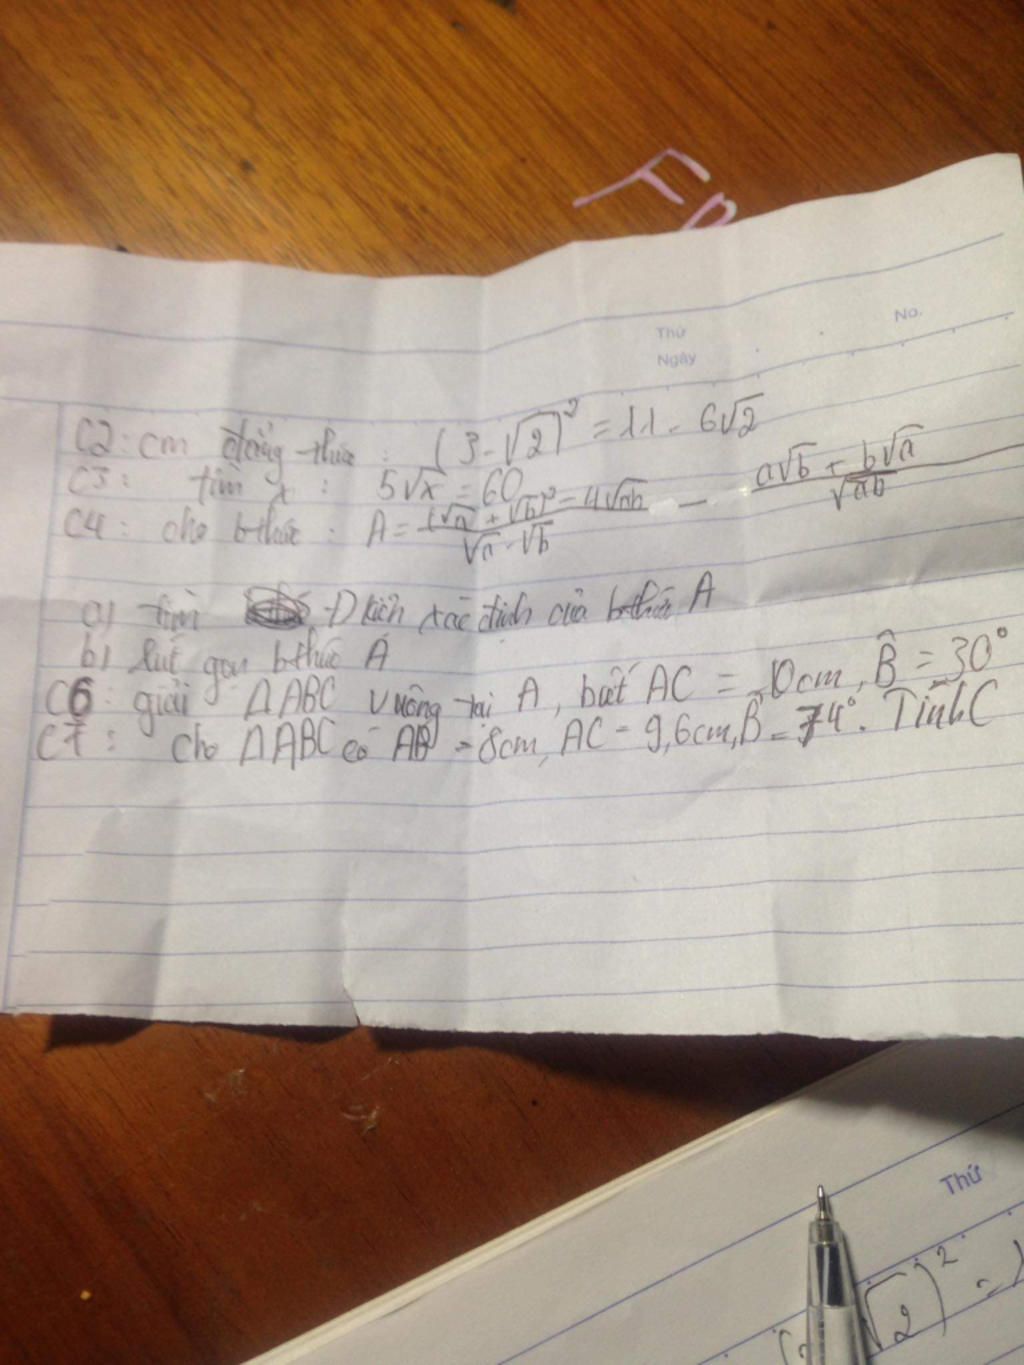 Thứ
No.
Ngày
C2: cm đẳng thức : (3-√2)² = 11 - 6√2
C3: tìm x : 5√x = 60
C4: cho bthức : A = (√a + √b)² - 4√ab / √a - √b - a√b + b√a / √ab
a) tìm Đkiện xác định của bthức A
b) Rút gọn bthức A
C6: giải ΔABC vuông tại A, biết AC = 10cm, B̂ = 30°
C7: cho ΔABC có AB = 8cm, AC = 9,6cm, B̂ = 74°. Tính C
Thứ
√2)² =